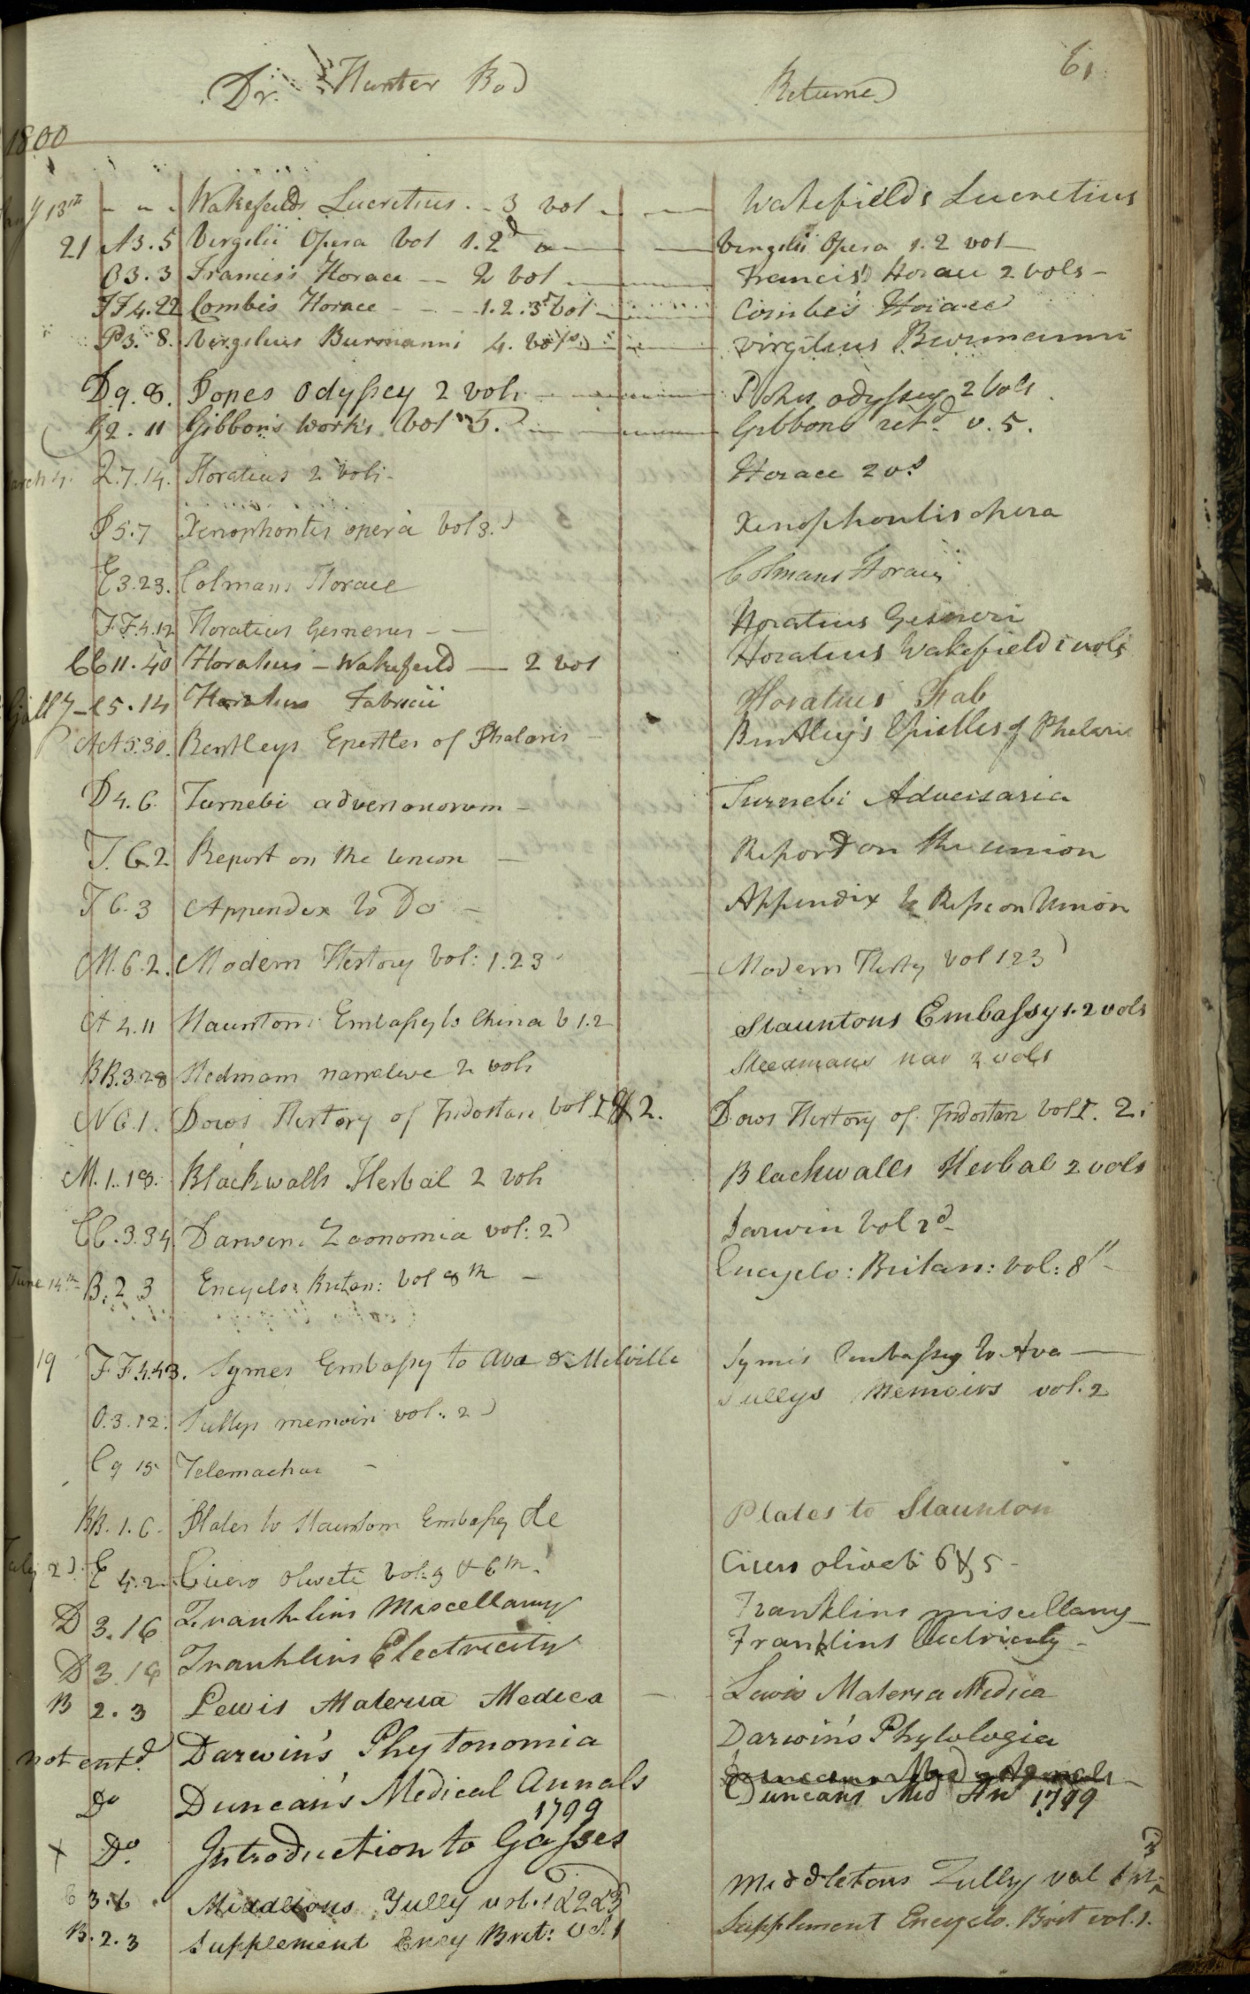 61
Dr. Hunter Bod Returned
1800
13th - - - Wakefields Lucretius. - 3 vol - Wakefields Lucretius
21 A3.5 Virgilii Opera Vol 1.2d - Virgilii Opera 1.2 vol
O3.3 Francis's Horace -- 2 vol - Francis's Horace 2 vols -
FF4.22 Combes Horace - - - 1.2.3 vol - Combe's Horace
P3.8. Virgilius Burmanni 4. vols - Virgilius Burmanni
D9.8. Popes Odyssey 2 vols - Popes odyssey 2 vols
G2.11 Gibbons works. Vol 5. - Gibbons retd. v. 5.
arch 4. Q.7.14. Horatius 2 vols - Horace 2 vs
S5.7 Xenophontis opera Vol 3.d Xenophontis opera
E3.23. Colmans Horace Colmans Horace
FF.4.12 Horatius Gesneri - - Horatius Gesneri
CC11.40 Horatius - Wakefield - 2 vol Horatius Wakefield 2 vols
e5.14 Horatius Fabricii Horatius Fab
AA5.30. Bentleys Epistles of Phalaris - Bentley's Epistles of Phalaris
D4.6. Turnebi adversariorum - Turnebi Adversaria
T.6.2 Report on the Union - Report on the union
T6.3 Appendix to Do - Appendix to Repe on Union
M.6.2. Modern History Vol: 1.2 3 - Modern Histy Vol 1 2 3
A4.11 Stauntons Embassy to China v 1.2 Stauntons Embassy 1.2 vols
BB.3.28 Stedmans narrative 2 vols Steedmans nar 2 vols
N6.1. Dows History of Indostan Vol I & 2. Dows History of Indostan Vol I. 2.
M.1.18. Blackwalls Herbal 2 vols Blackwalls Herbal 2 vols
CC.3.34. Darwins Zoonomia vol: 2d Darwin Vol 2d
June 14th B.2 3 Encyclo: Britan: Vol 8th - Encyclo: Britan: Vol: 8th
19 FF4.43. Symes Embassy to Ava & Melville Symes Embassy to Ava
O.3.12. Sullys memoirs vol. 2d Sullys Memoirs vol. 2
C9 15 Telemachus -
BB.1.6. Plates to Stauntons Embassy &c Plates to Staunton
July 2d. E 4.2. Cicero oliveti Vol. 5 & 6th. Cicero oliveti 6 & 5 -
D 3.16 Franklins Miscellany Franklins miscellany
D 3.16 Franklins Electricity Franklins Electricity -
B 2.3 Lewis Materia Medica - Lewis Materia Medica
not entd. Darwin's Phytonomia Darwin's Phytologia
Do Duncan's Medical Annals 1799 Duncans Med Annals
Duncans Med An 1799
x Do. Introduction to Gasses
3.6 Middletons Tully vol. 1 & 2 & 3d Middletons Tully vol
B.2.3 Supplement Ency Brit: Vol. 1 Supplement Encyclo. Brit vol. 1.